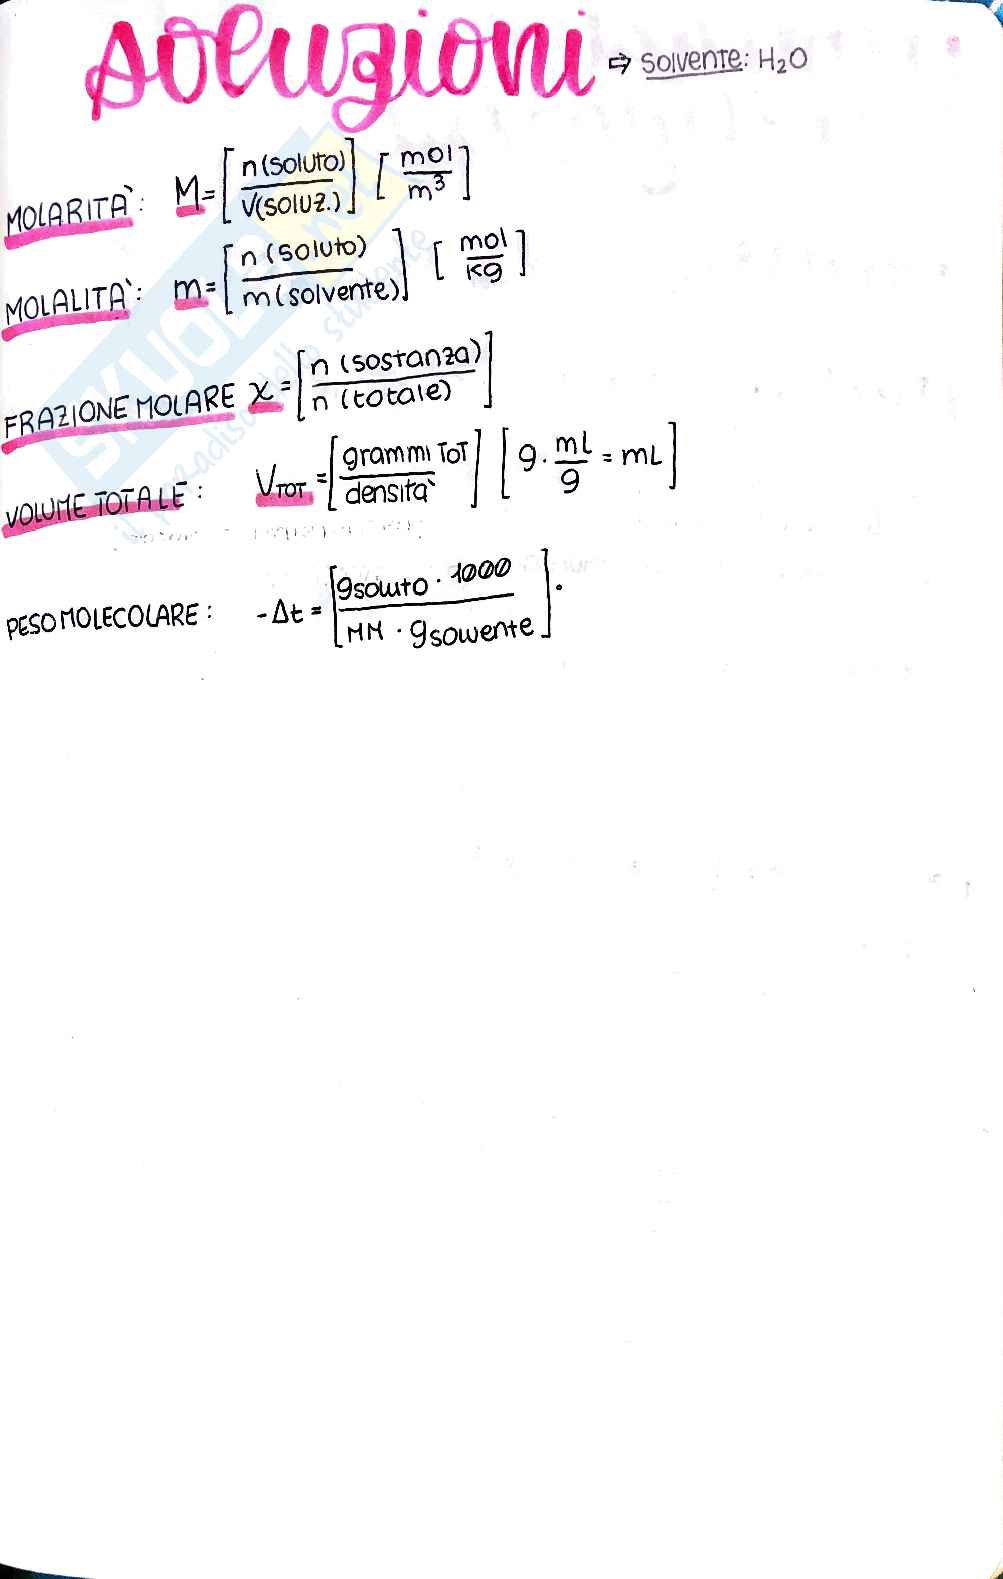 soluzioni ⇒ solvente: H₂O
MOLARITÀ: M = [n(soluto) / V(soluz.)] [mol / m³]
MOLALITÀ: m = [n(soluto) / m(solvente)] [mol / kg]
FRAZIONE MOLARE χ = [n(sostanza) / n(totale)]
VOLUME TOTALE: V_TOT = [grammi TOT / densità] [g · mL / g = mL]
PESO MOLECOLARE: -Δt = [g soluto · 1000 / MM · g solvente] ·
SKUOLA.net
il paradiso dello studente